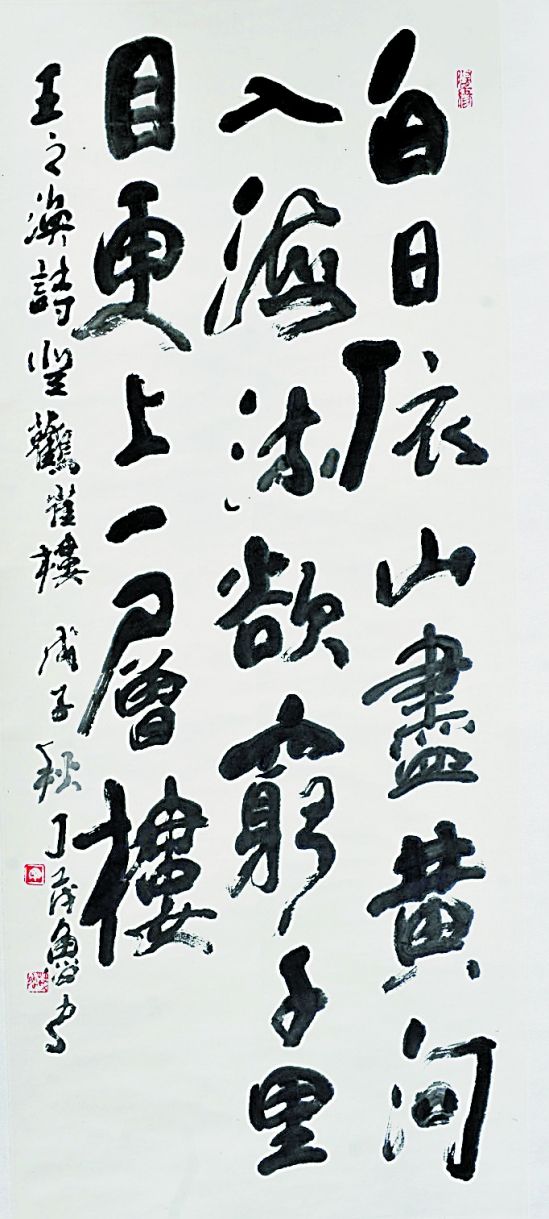 白日依山盡黄河
入海流欲窮千里
目更上一層樓
王之渙詩登鸛雀樓 戊子秋丁茂魯